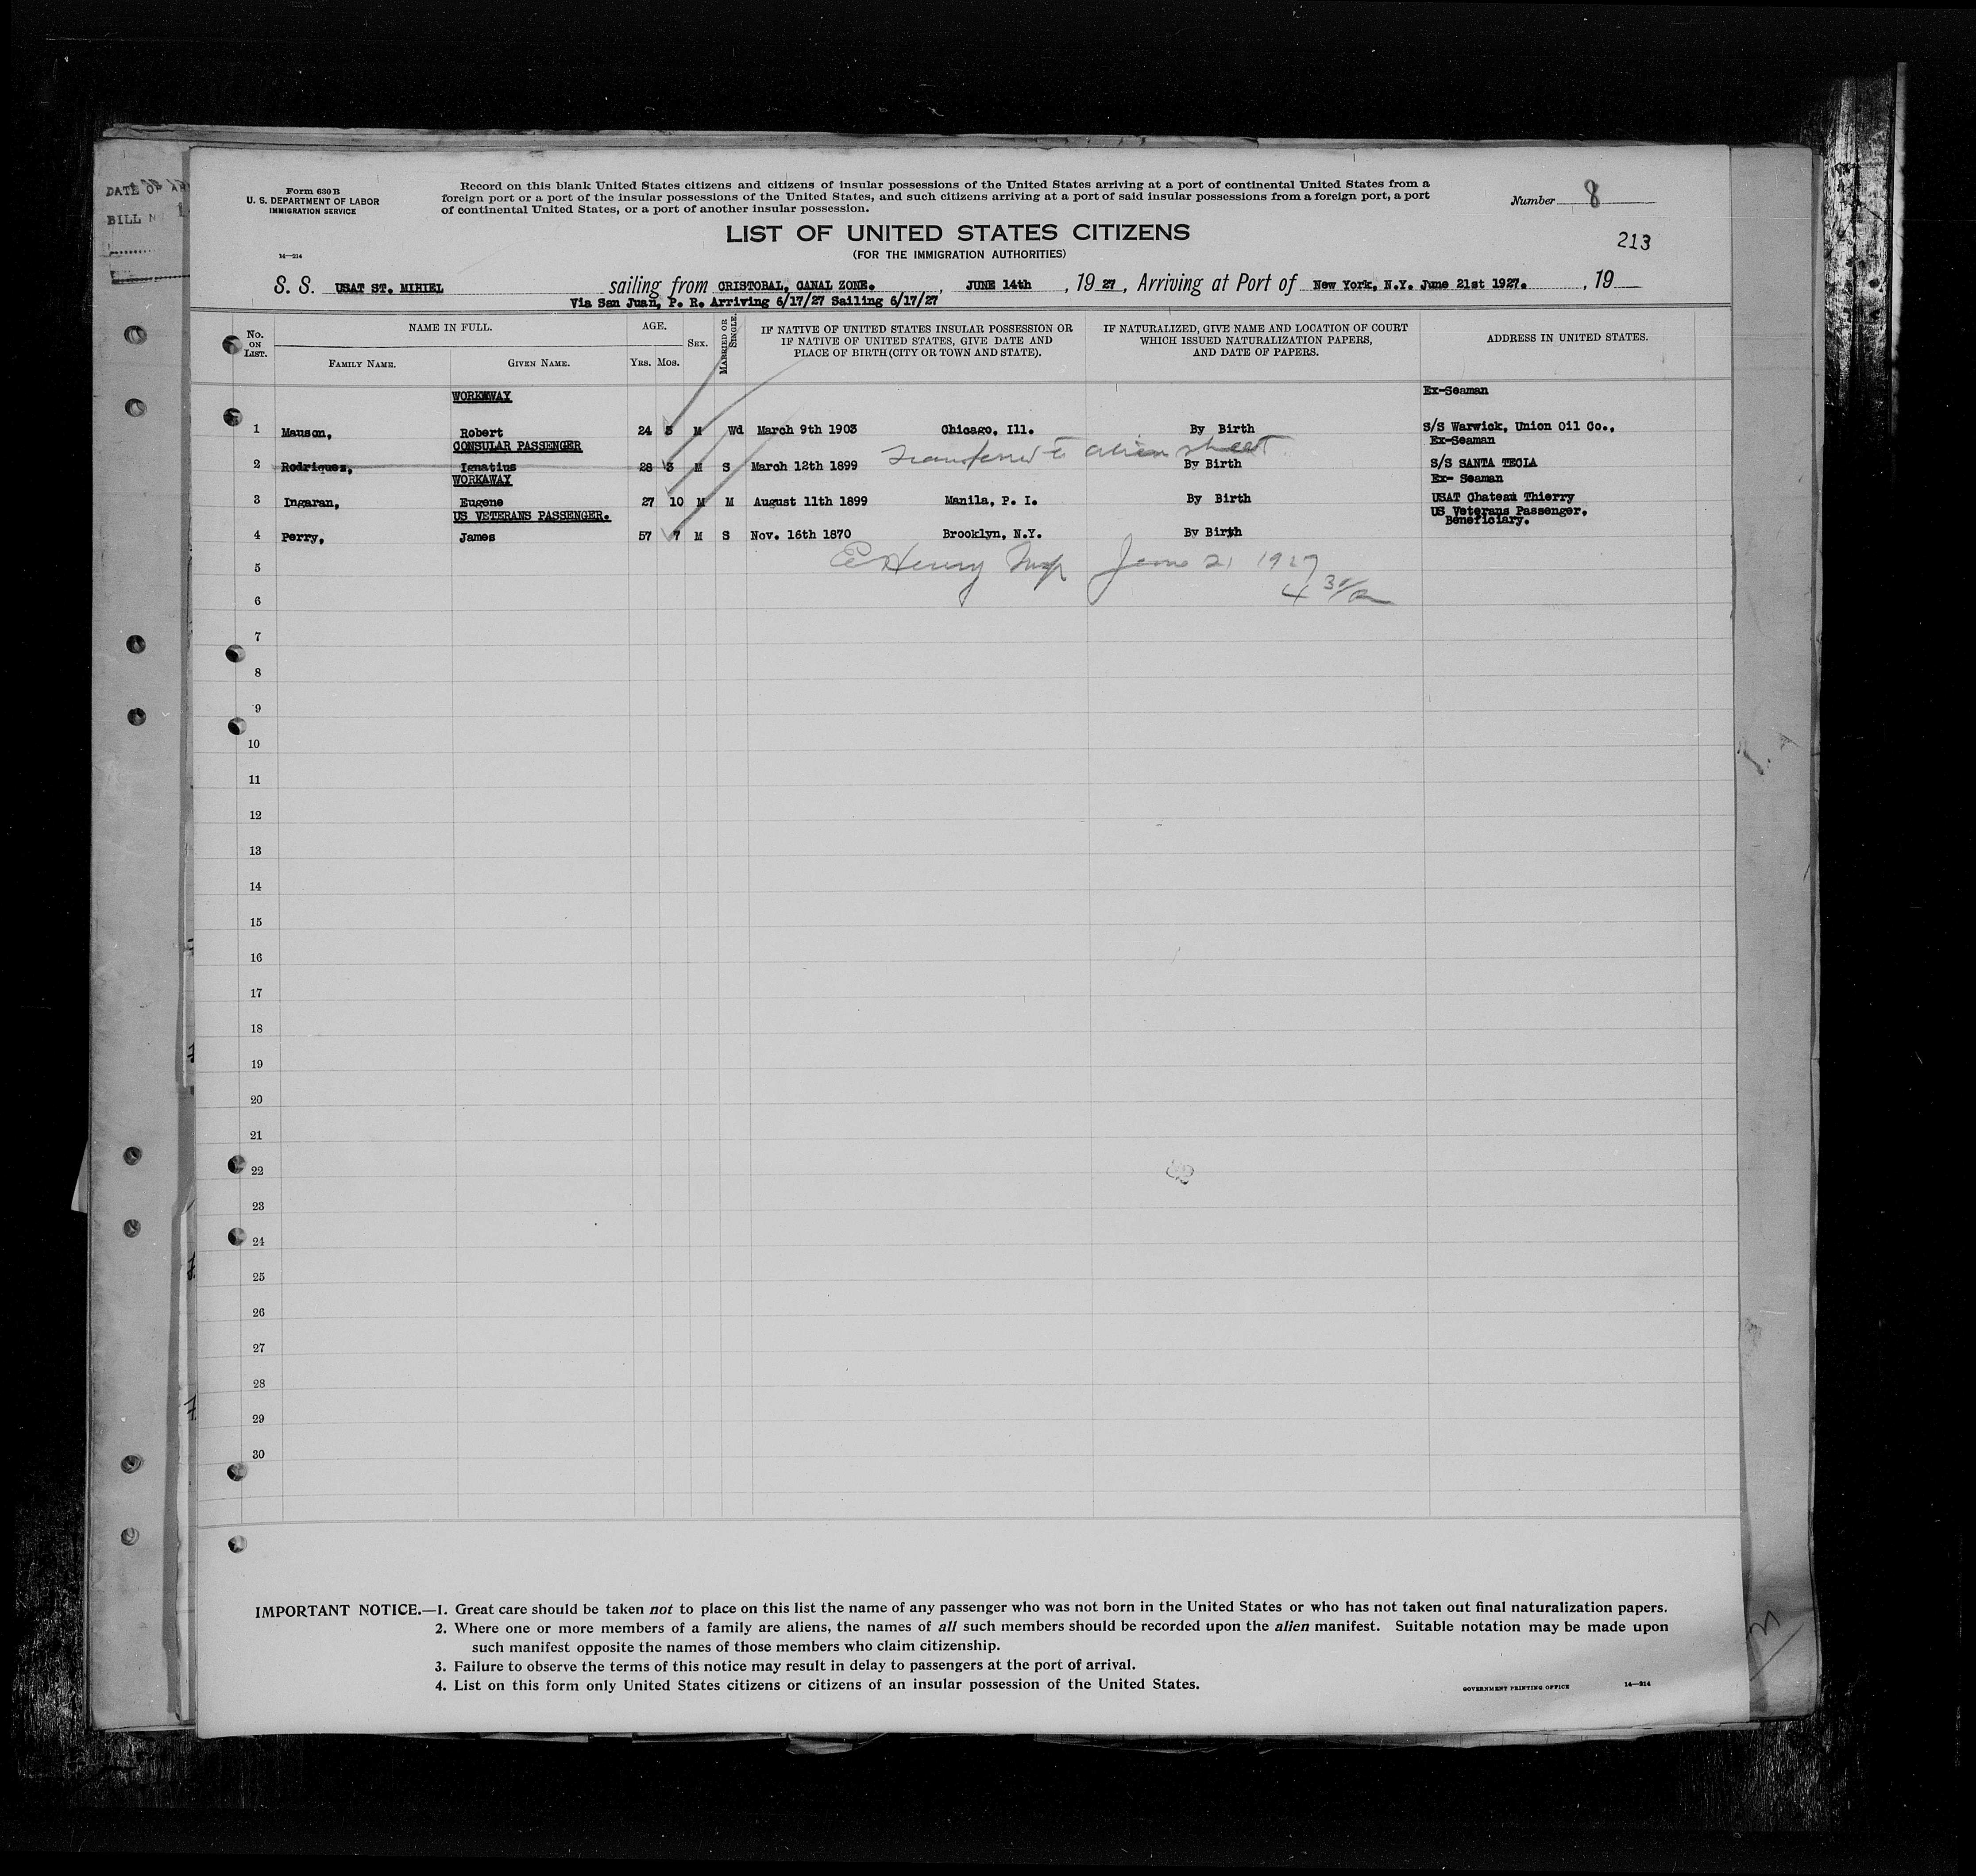 DATE OF
BILL N
Form 630 B
U. S. DEPARTMENT OF LABOR
IMMIGRATION SERVICE
14—214
Record on this blank United States citizens and citizens of insular possessions of the United States arriving at a port of continental United States from a
foreign port or a port of the insular possessions of the United States, and such citizens arriving at a port of said insular possessions from a foreign port, a port
of continental United States, or a port of another insular possession.
Number 8
213
LIST OF UNITED STATES CITIZENS
(FOR THE IMMIGRATION AUTHORITIES)
S. S. USAT ST. MIHIEL sailing from CRISTOBAL, CANAL ZONE. , JUNE 14th , 19 27 , Arriving at Port of New York, N.Y. June 21st 1927. , 19
Via San Juan, P. R. Arriving 6/17/27 Sailing 6/17/27
No. ON LIST. NAME IN FULL. AGE. SEX. MARRIED OR SINGLE. IF NATIVE OF UNITED STATES INSULAR POSSESSION OR IF NATIVE OF UNITED STATES, GIVE DATE AND PLACE OF BIRTH (CITY OR TOWN AND STATE). IF NATURALIZED, GIVE NAME AND LOCATION OF COURT WHICH ISSUED NATURALIZATION PAPERS, AND DATE OF PAPERS. ADDRESS IN UNITED STATES.
FAMILY NAME. GIVEN NAME. YRS. MOS.
WORKAWAY Ex-Seaman
1 Manson, Robert 24 3 M Wd March 9th 1903 Chicago, Ill. By Birth S/S Warwick, Union Oil Co.,
CONSULAR PASSENGER Ex-Seaman
Transferred to alien sheet
2 Rodriquez, Ignatius 28 3 M S March 12th 1899 By Birth S/S SANTA TECLA
WORKAWAY Ex- Seaman
3 Ingaran, Eugene 27 10 M M August 11th 1899 Manila, P. I. By Birth USAT Chateau Thierry
US VETERANS PASSENGER. US Veterans Passenger.
Beneficiary.
4 Perry, James 57 7 M S Nov. 16th 1870 Brooklyn, N.Y. By Birth
5 Henry Insp June 21 1927
6
7
8
9
10
11
12
13
14
15
16
17
18
19
20
21
22
23
24
25
26
27
28
29
30
IMPORTANT NOTICE.—1. Great care should be taken not to place on this list the name of any passenger who was not born in the United States or who has not taken out final naturalization papers.
2. Where one or more members of a family are aliens, the names of all such members should be recorded upon the alien manifest. Suitable notation may be made upon
such manifest opposite the names of those members who claim citizenship.
3. Failure to observe the terms of this notice may result in delay to passengers at the port of arrival.
4. List on this form only United States citizens or citizens of an insular possession of the United States.
GOVERNMENT PRINTING OFFICE 14—214